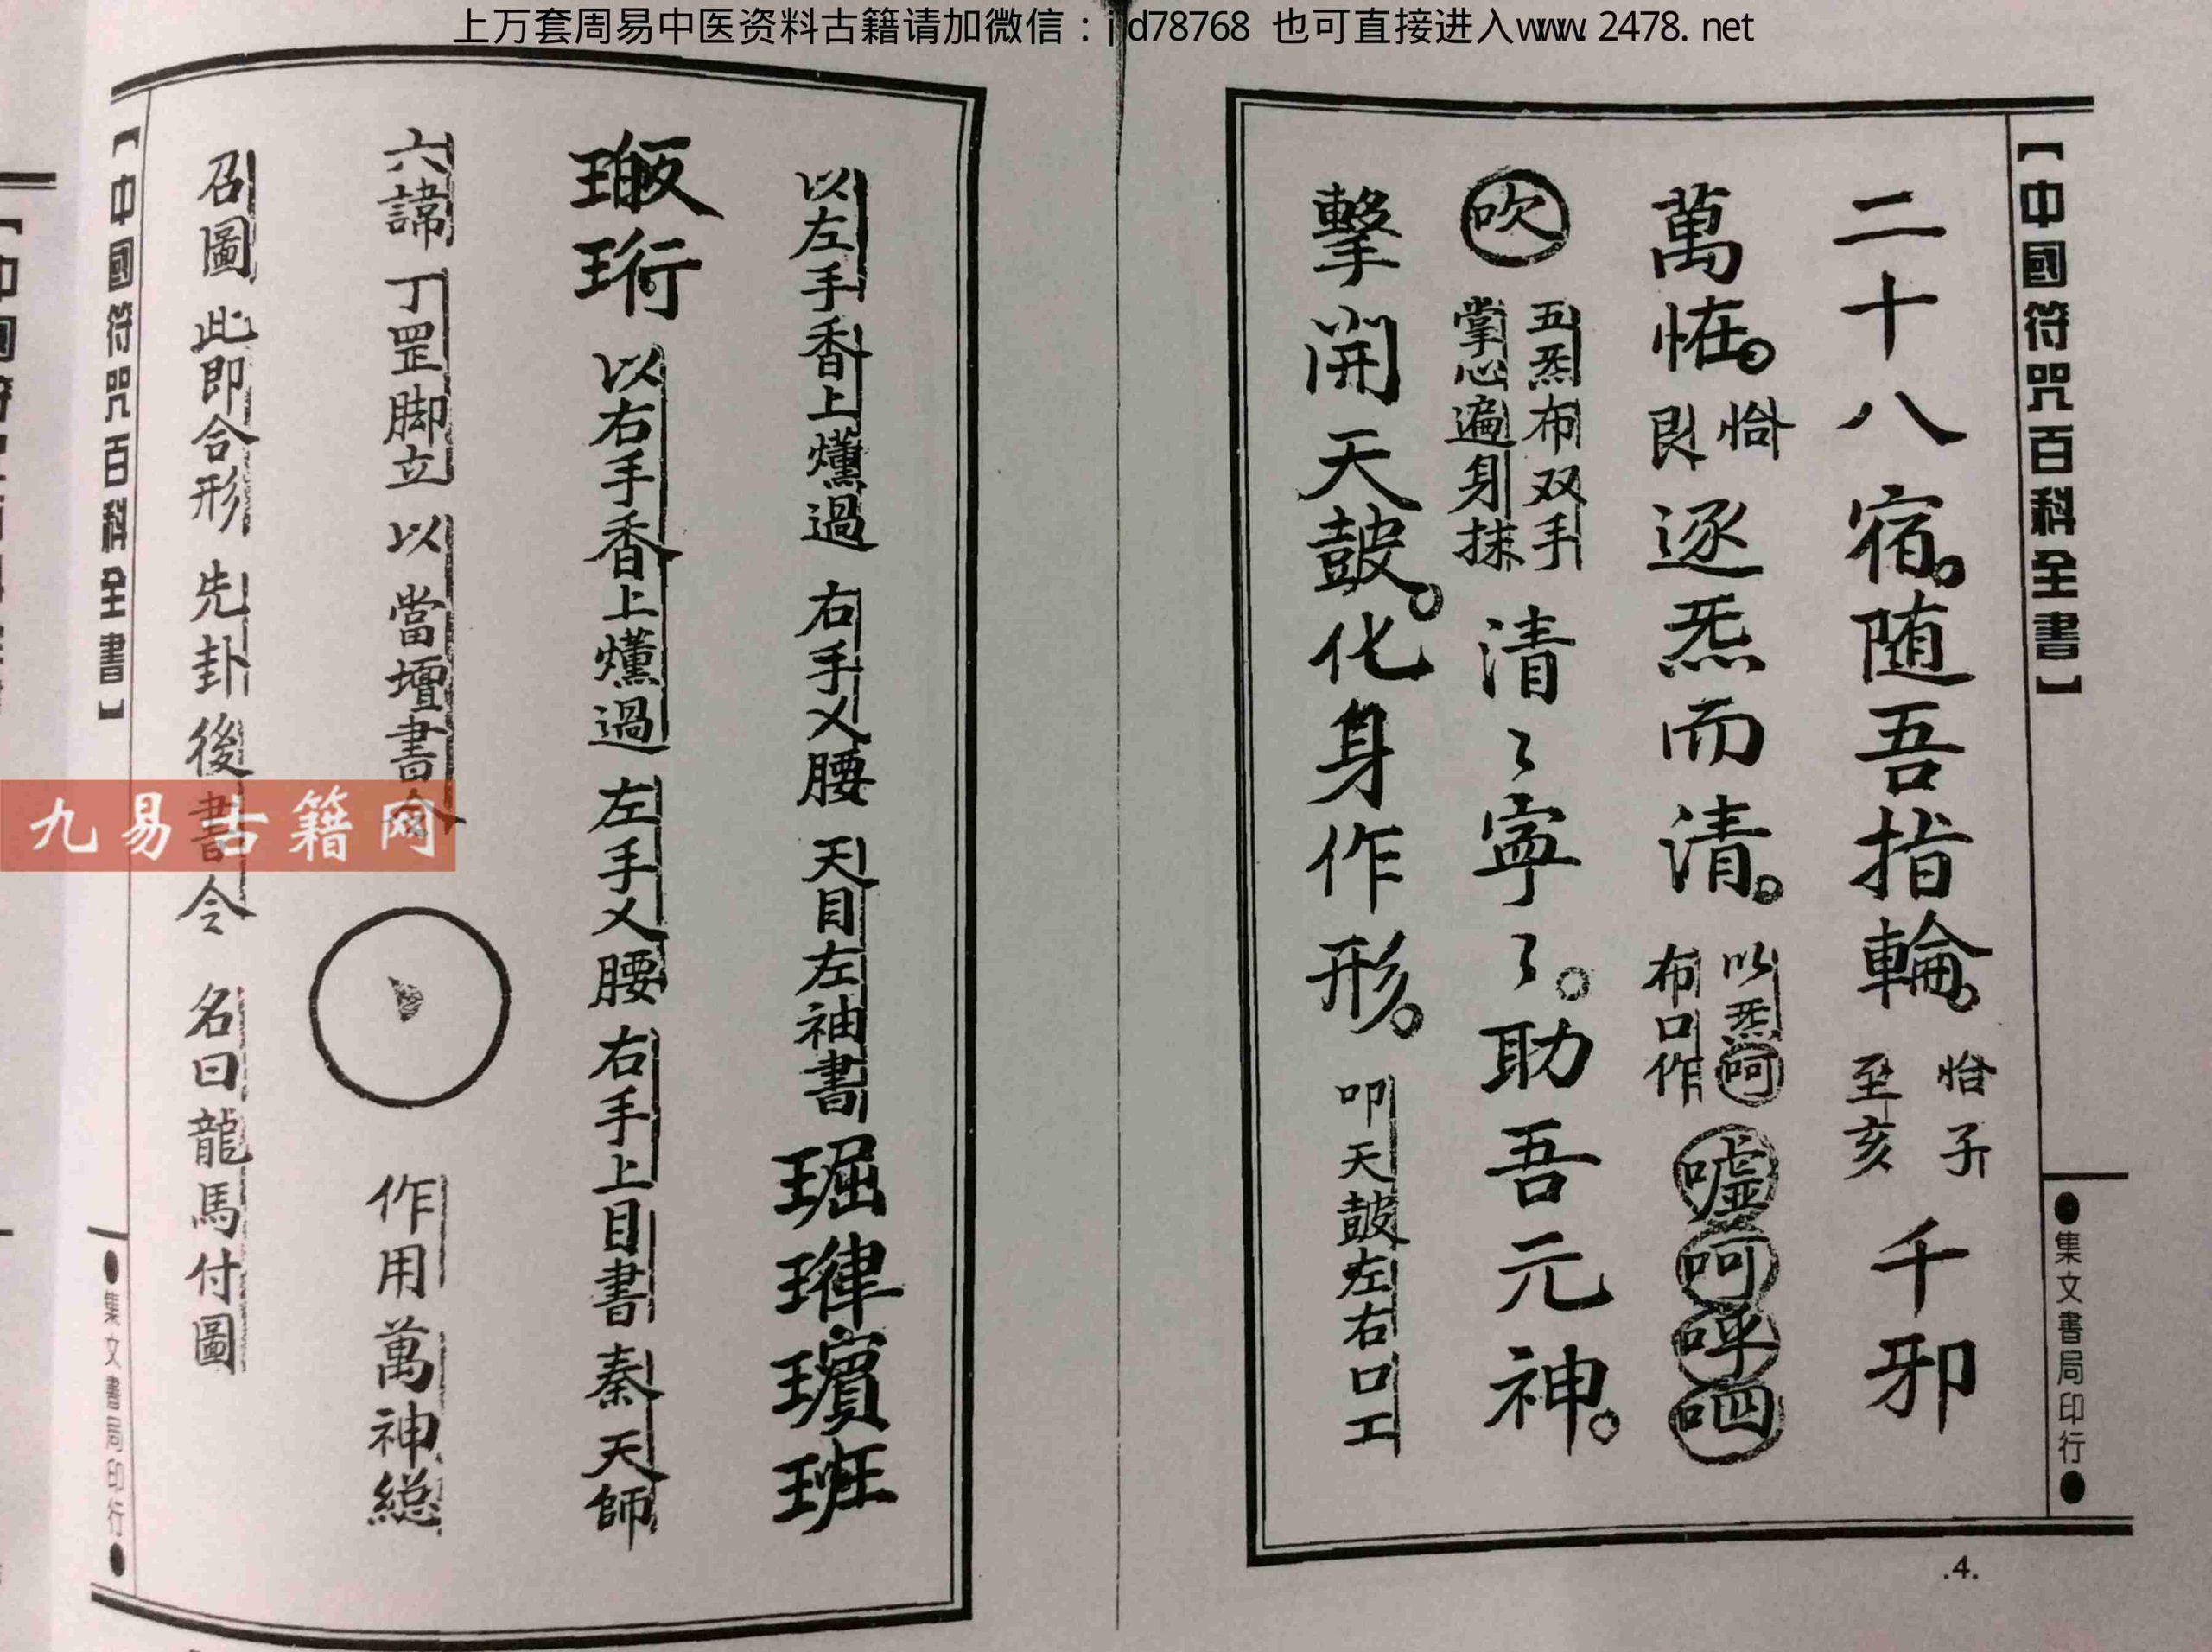 上万套周易中医资料古籍请加微信：jjd78768 也可直接进入www.2478.net
【中國符咒百科全書】
●集文書局印行●
二十八宿。随吾指輪。恰子至亥千邪
萬恠。恰艮逐炁而清。以炁呵布口作噓呵呼呬
吹五炁布双手掌心遍身抹清〻寧〻。助吾元神。
擊開天皷。化身作形。叩天皷左右口工
.4.
以左手香上爋過 右手乂腰 天目左袖書
以右手香上爋過 左手乂腰 右手上目書 秦天師
六諱 丁罡脚立 以當壇書 作用萬神総
召圖 此即合形 先卦後書令 名曰龍馬付圖
【中國符咒百科全書】
●集文書局印行●
九易古籍网